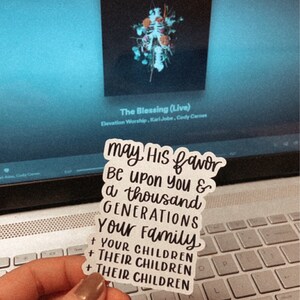 The Blessing (Live)
Elevation Worship, Kari Jobe, Cody Carnes
may HIS favor
BE UPON YOU &
a thousand
GENERATIONS
your family
+ YOUR CHILDREN
+ THEIR CHILDREN
+ THEIR CHILDREN